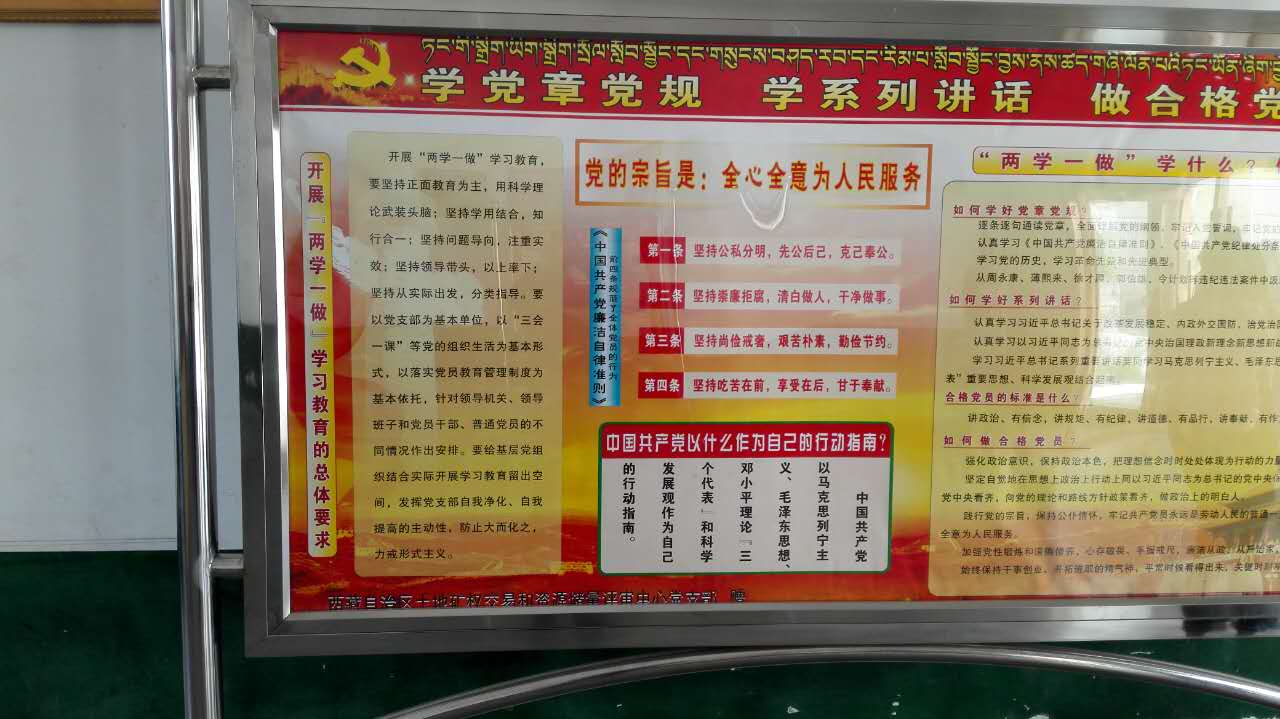 ཏང་གི་སྒྲིག་ཡིག་སྒྲིག་སྲོལ་སློབ་སྦྱོང་དང་གསུངས་བཤད་རབ་དང་རིམ་པ་སློབ་སྦྱོང་བྱས་ནས་ཚད་གཞི་ལོན་པའི་ཏང་ཡོན་ཞིག་
学党章党规 学系列讲话 做合格党
开展『两学一做』学习教育的总体要求
开展“两学一做”学习教育，
要坚持正面教育为主，用科学理
论武装头脑；坚持学用结合，知
行合一；坚持问题导向，注重实
效；坚持领导带头，以上率下；
坚持从实际出发，分类指导。要
以党支部为基本单位，以“三会
一课”等党的组织生活为基本形
式，以落实党员教育管理制度为
基本依托，针对领导机关、领导
班子和党员干部、普通党员的不
同情况作出安排。要给基层党组
织结合实际开展学习教育留出空
间，发挥党支部自我净化、自我
提高的主动性，防止大而化之，
力戒形式主义。
党的宗旨是：全心全意为人民服务
《中国共产党廉洁自律准则》
前四条规范了全体党员的行为
第一条 坚持公私分明，先公后己，克己奉公。
第二条 坚持崇廉拒腐，清白做人，干净做事。
第三条 坚持尚俭戒奢，艰苦朴素，勤俭节约。
第四条 坚持吃苦在前，享受在后，甘于奉献。
中国共产党以什么作为自己的行动指南？
中国共产党
以马克思列宁主
义、毛泽东思想、
邓小平理论『三
个代表』和科学
发展观作为自己
的行动指南。
“两学一做”学什么？
如何学好党章党规？
逐条逐句通读党章，全面理解党的纲领，牢记入党誓词，牢记党的
认真学习《中国共产党廉洁自律准则》、《中国共产党纪律处分条
学习党的历史，学习革命先辈和先进典型，
从周永康、薄熙来、徐才厚、郭伯雄、令计划等违纪违法案件中汲
如何学好系列讲话？
认真学习习近平总书记关于改革发展稳定、内政外交国防、治党治
认真学习以习近平同志为总书记的党中央治国理政新理念新思想新战
学习习近平总书记系列重要讲话要同学习马克思列宁主义、毛泽东思
表”重要思想、科学发展观结合起来。
合格党员的标准是什么？
讲政治、有信念，讲规矩、有纪律，讲道德、有品行，讲奉献、有作
如何做合格党员？
强化政治意识，保持政治本色，把理想信念时时处处体现为行动的力量
坚定自觉地在思想上政治上行动上同以习近平同志为总书记的党中央保
党中央看齐，向党的理论和路线方针政策看齐，做政治上的明白人。
践行党的宗旨，保持公仆情怀，牢记共产党员永远是劳动人民的普通一
全意为人民服务。
加强党性锻炼和道德修养，心存敬畏、手握戒尺，廉洁从政、从严治家，
始终保持干事创业、开拓进取的精气神，平常时候看得出来，关键时刻
西藏自治区土地矿权交易和资源储量评审中心党支部